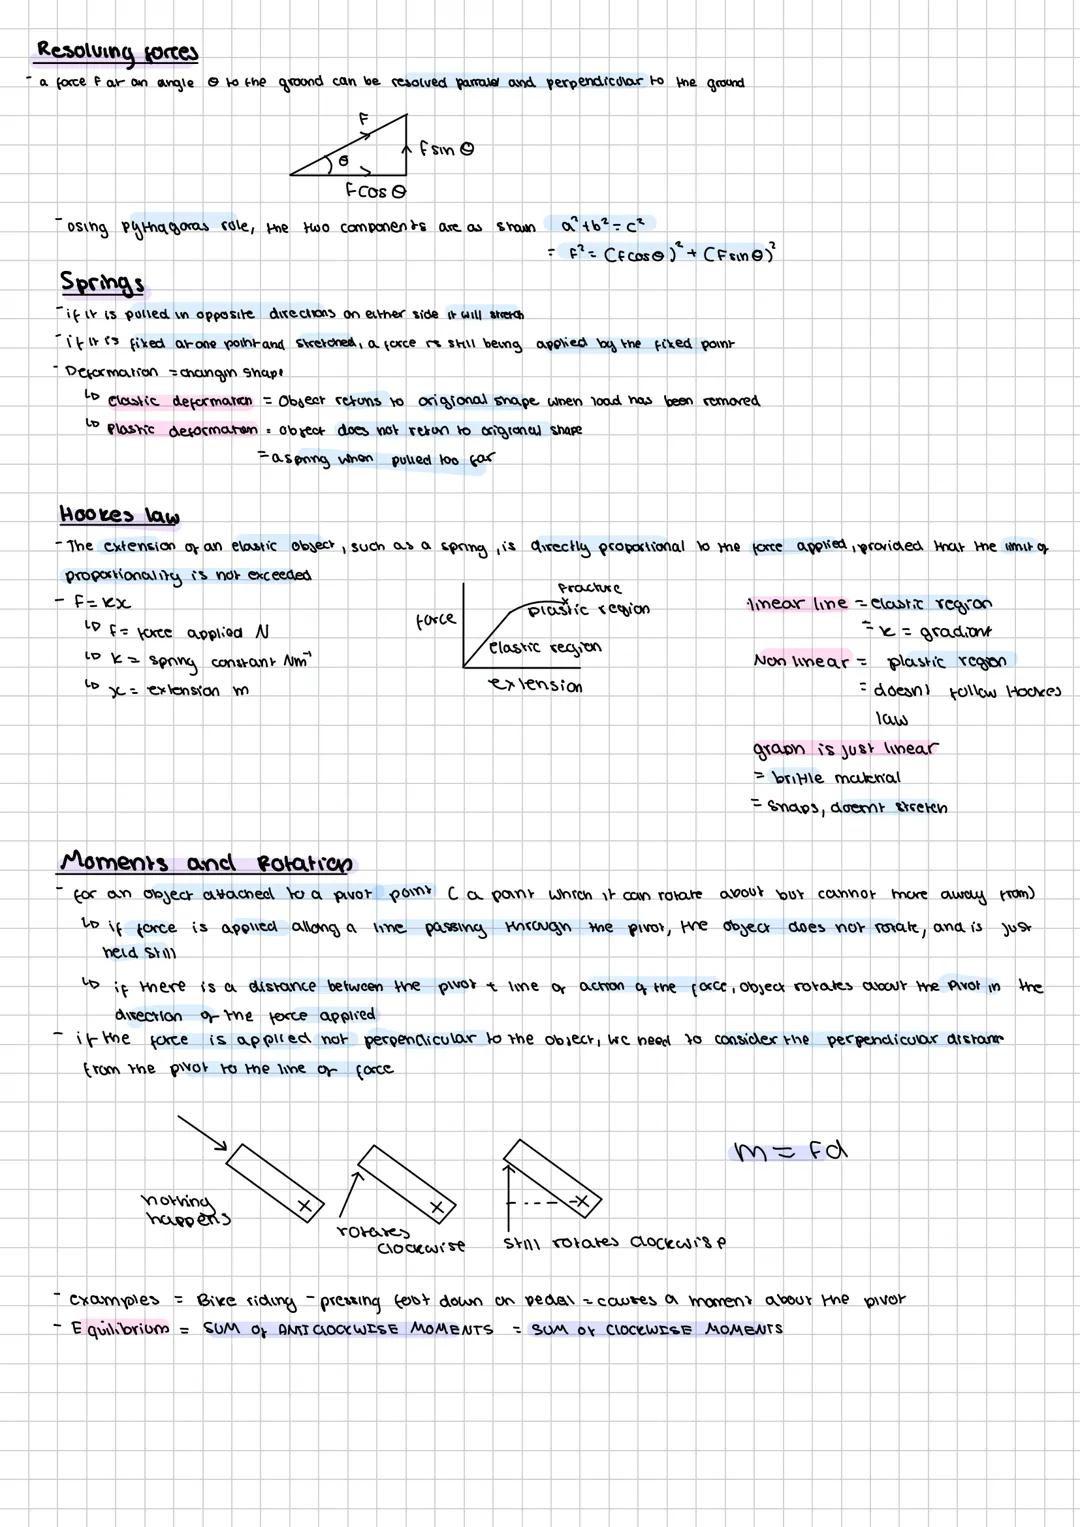 Resolving forces
- a force F at an angle θ to the ground can be resolved parralel and perpendicular to the ground
F
θ
Fsin θ
Fcos θ
- using pythagoras rule, the two components are as shown a²+b²=c²
= F²= (Fcosθ)²+ (Fsinθ)²
Springs
- if it is pulled in opposite directions on either side it will stretch
- if it is fixed at one point and stretched, a force is still being applied by the fixed point
- Deformation = changin shape
↳ elastic deformation = Object retuns to origional shape when load has been removed
↳ Plastic deformation = object does not retun to origional shape
= a spring when pulled too far
Hookes law
- The extension of an elastic object, such as a spring, is directly proportional to the force applied, provided that the limit of
proportionality is not exceeded
- F=kx
↳ F= force applied N
↳ k = spring constant Nm⁻¹
↳ x = extension m
force
fracture
plastic region
elastic region
extension
linear line = elastic region
= k = gradient
Non linear = plastic region
= doesnt follow Hookes
law
graph is just linear
= brittle material
= snaps, doesnt stretch
Moments and Rotation
- for an object attached to a pivot point (a point which it can rotate about but cannot move away from)
↳ if force is applied allong a line passing through the pivot, the object does not rotate, and is just
held still
↳ if there is a distance between the pivot + line of action of the force, object rotates about the pivot in the
direction of the force applied
- if the force is applied not perpendicular to the object, we need to consider the perpendicular distance
from the pivot to the line of force
nothing
happens
rotates
clockwise
still rotates clockwise
m = Fd
- examples = Bike riding - pressing foot down on pedal = causes a moment about the pivot
- Equilibrium = SUM OF ANTICLOCKWISE MOMENTS = SUM OF CLOCKWISE MOMENTS